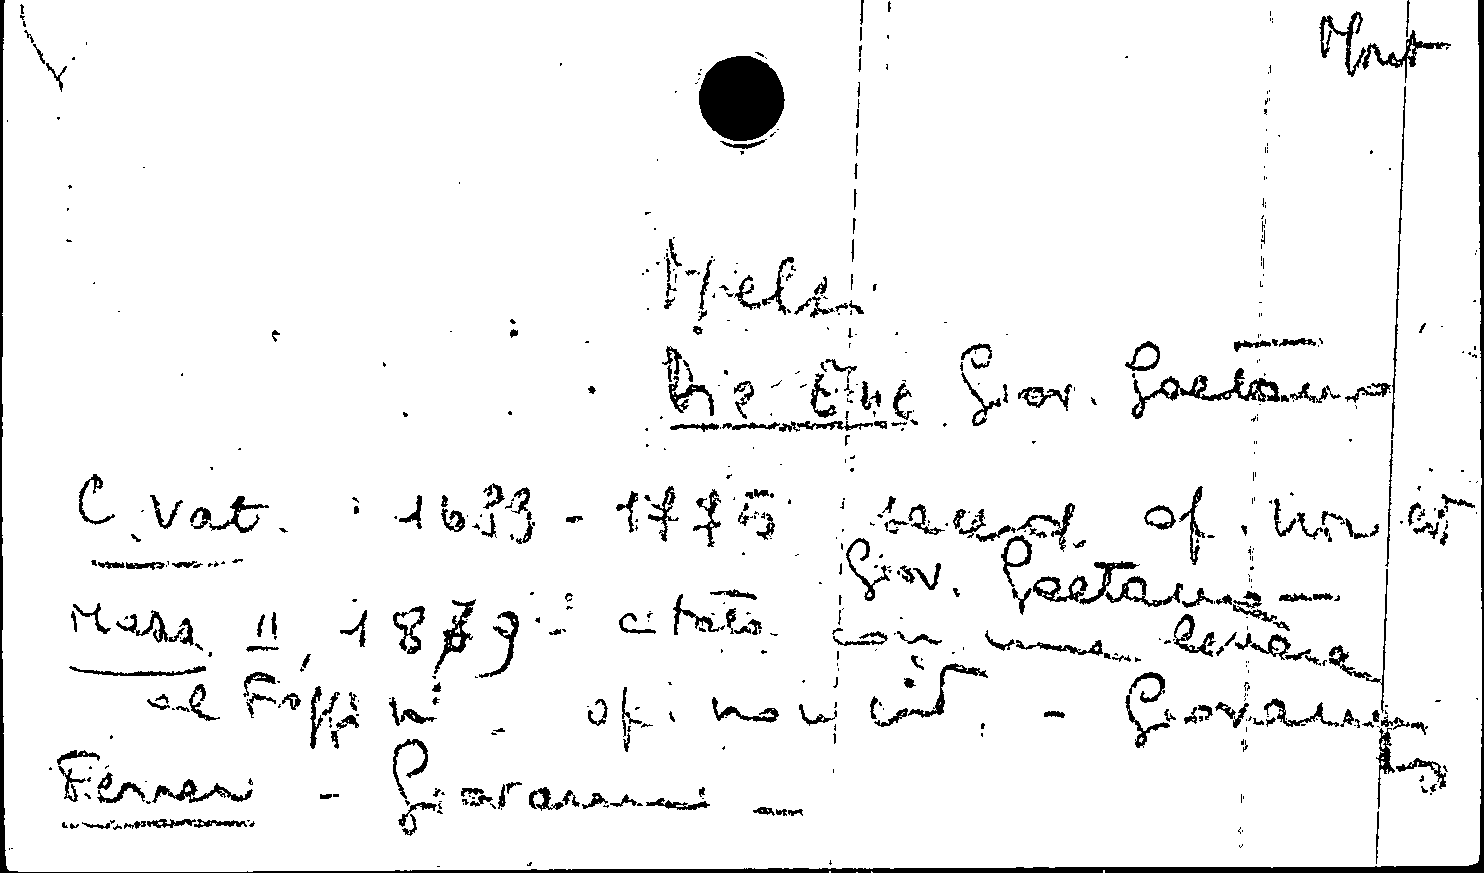 Mont
Melzi
Die Enc Giov. Gaetano
C. Vat. : 1699 - 1775 op. non cit
Giov. Gaetano —
Mazz. II, 1879 : citato con una lettera
al Foffini - op. non cit. - Giovanni
Ferrari - Giovanni —